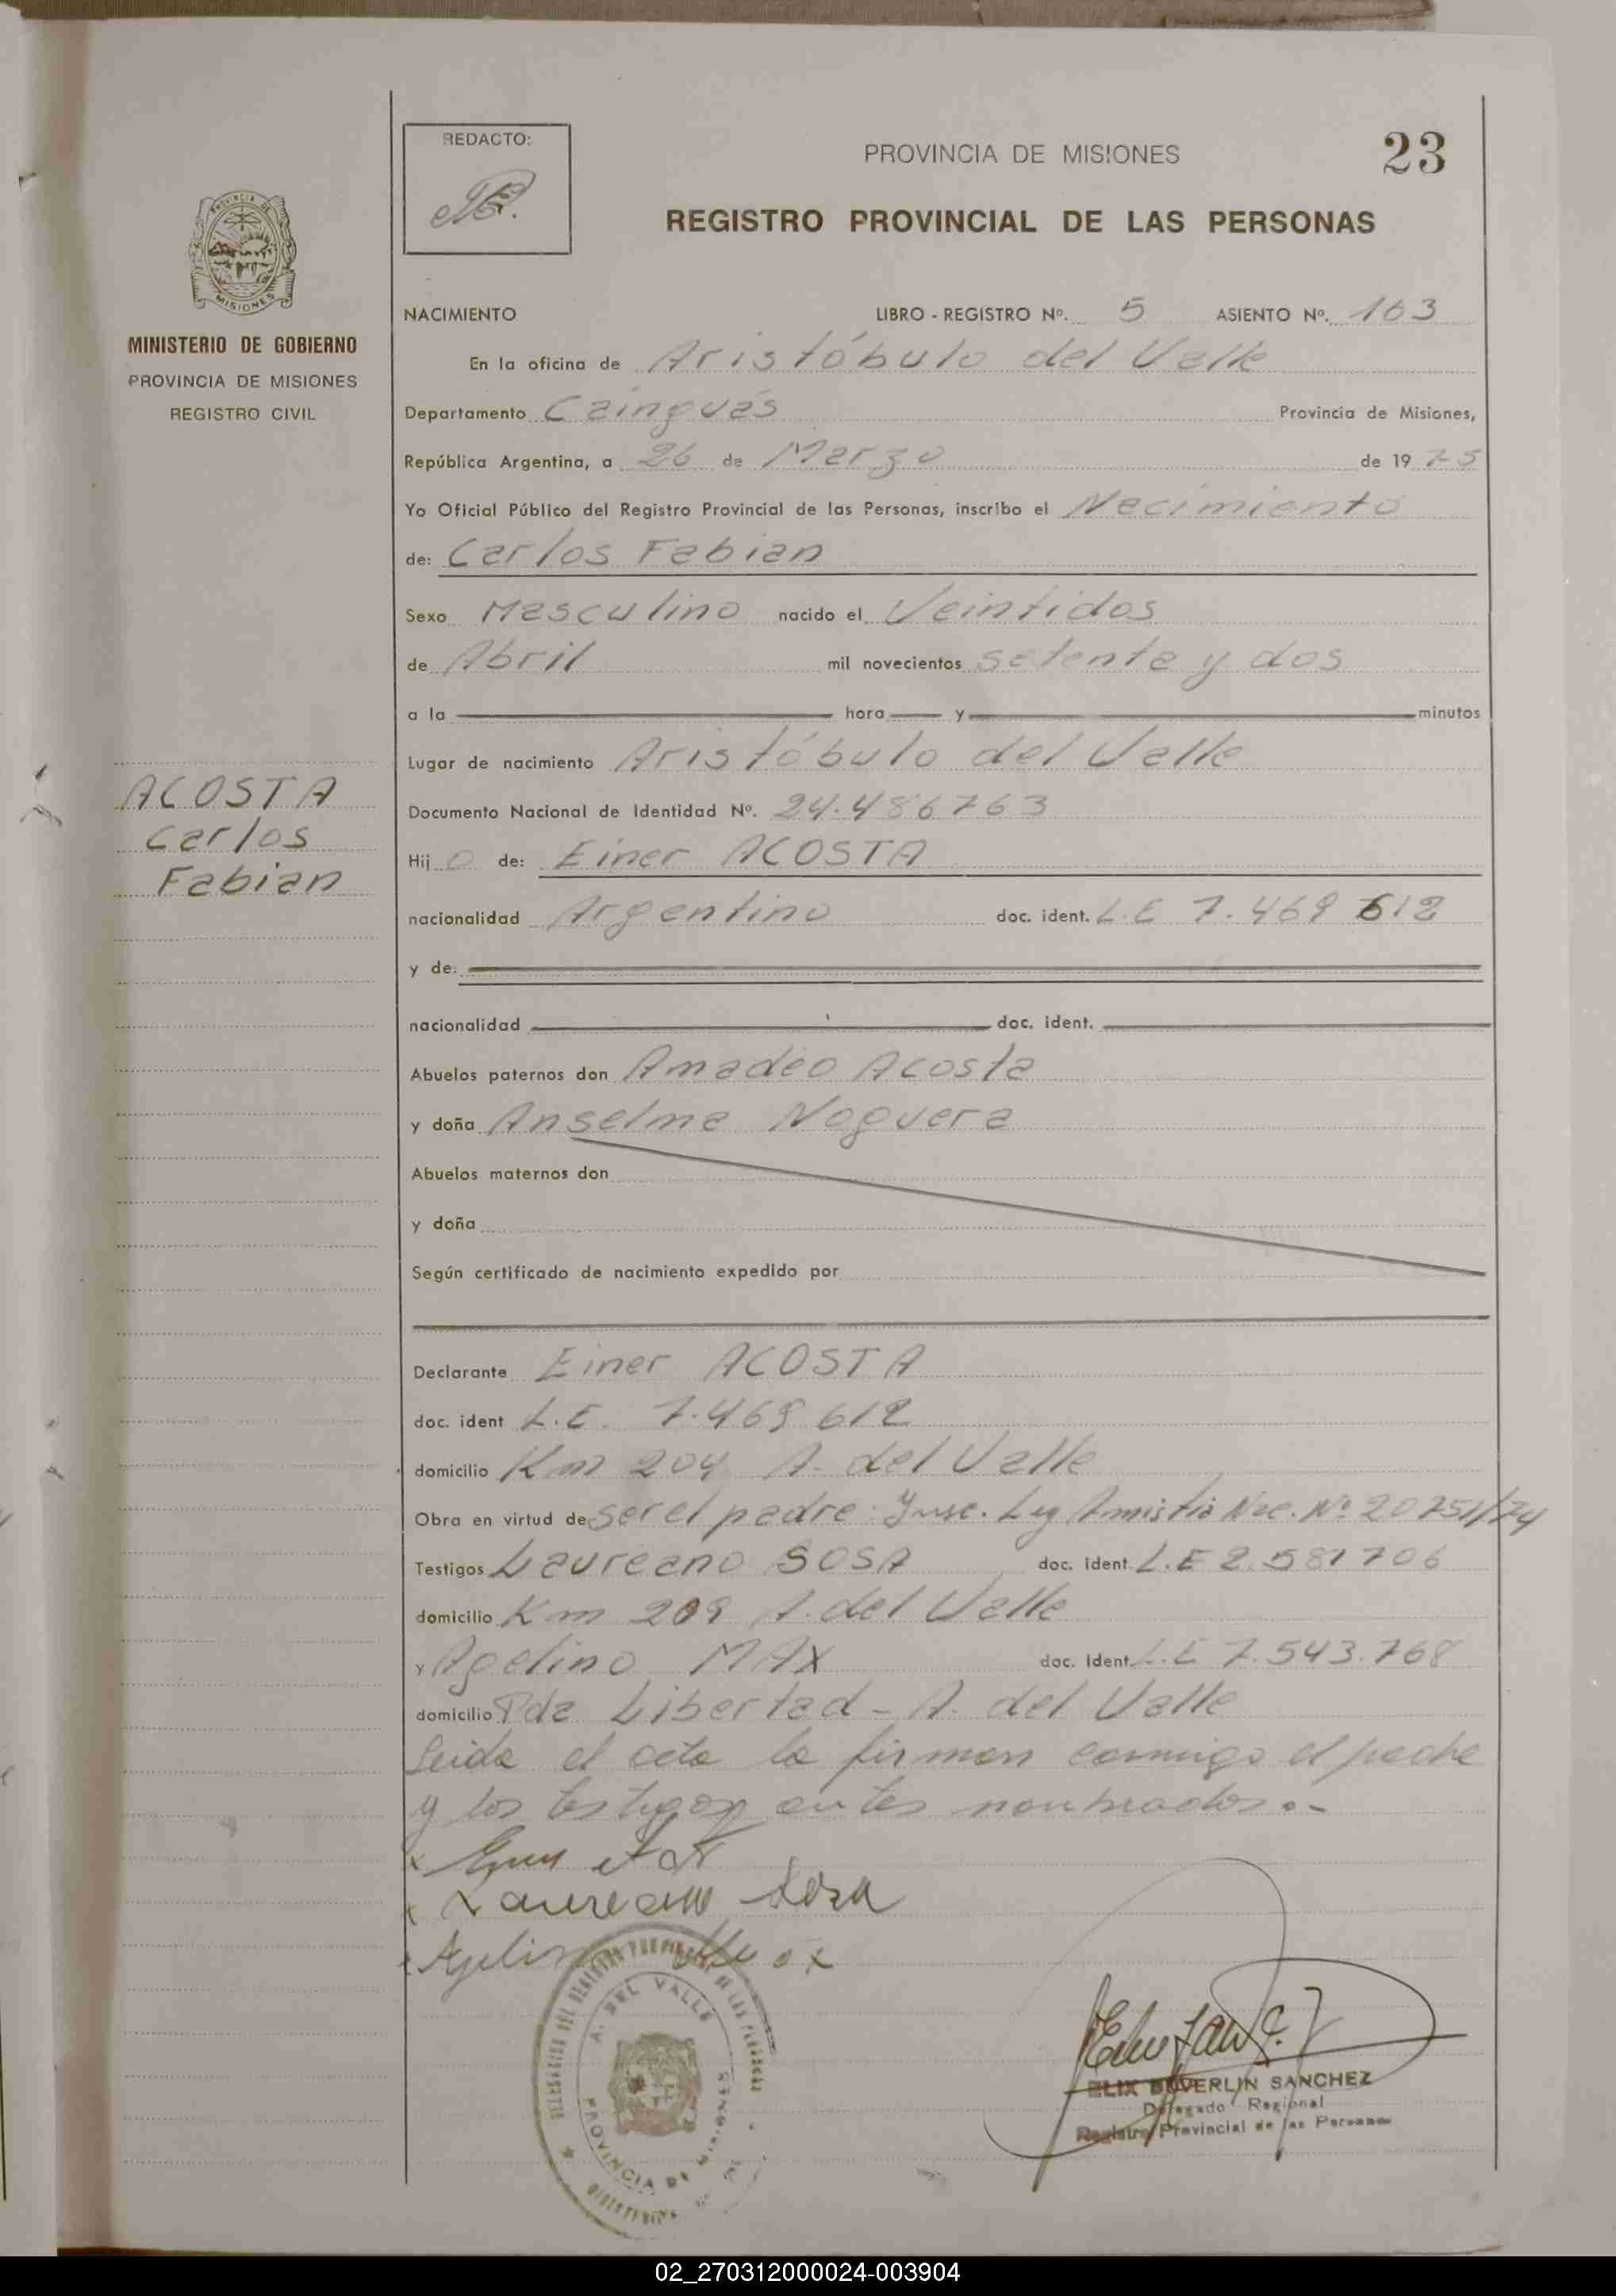 REDACTO:
PROVINCIA DE MISIONES
23
REGISTRO PROVINCIAL DE LAS PERSONAS
MISIONES
MINISTERIO DE GOBIERNO
PROVINCIA DE MISIONES
REGISTRO CIVIL
NACIMIENTO LIBRO - REGISTRO Nº. 5 ASIENTO Nº. 163
En la oficina de Aristóbulo del Valle
Departamento Cainguás Provincia de Misiones,
República Argentina, a 26 de Marzo de 1975
Yo Oficial Público del Registro Provincial de las Personas, inscribo el Nacimiento
de: Carlos Fabian
Sexo Masculino nacido el Veintidos
de Abril mil novecientos setenta y dos
a la hora y minutos
Lugar de nacimiento Aristóbulo del Valle
ACOSTA
Carlos
Fabian
Documento Nacional de Identidad Nº. 24.486763
Hijo de: Einer ACOSTA
nacionalidad Argentino doc. ident. L.E 7.469 612
y de:
nacionalidad doc. ident.
Abuelos paternos don Amadeo Acosta
y doña Anselma Noguera
Abuelos maternos don
y doña
Según certificado de nacimiento expedido por
Declarante Einer ACOSTA
doc. ident L.E. 7.469 612
domicilio Km 204 A. del Valle
Obra en virtud de ser el padre. Insc. Ley Amistia Nac. Nº 20751/74
Testigos Laureano SOSA doc. ident. L.E 2.581706
domicilio Km 209 A. del Valle
y Agelino MAX doc. ident. L.E 7.543.768
domicilio Pda Libertad - A. del Valle
Leida el acta la firman conmigo el padre
y los testigos antes nombrados.-
Laureano Sosa
Agelino Max
A. DEL VALLE
PROVINCIA DE MISIONES
ELIX EUVERLIN SANCHEZ
Delegado Regional
Registro Provincial de las Personas
02_270312000024-003904